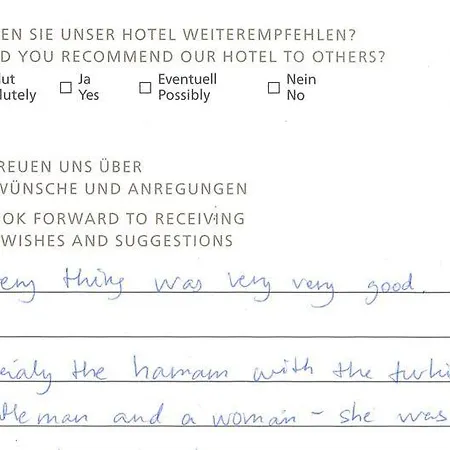 EN SIE UNSER HOTEL WEITEREMPFEHLEN?
D YOU RECOMMEND OUR HOTEL TO OTHERS?
ut Ja Eventuell Nein
lutely Yes Possibly No
REUEN UNS ÜBER
WÜNSCHE UND ANREGUNGEN
OK FORWARD TO RECEIVING
WISHES AND SUGGESTIONS
ery thing was very very good.
cialy the hamam with the turki
tleman and a woman - she was